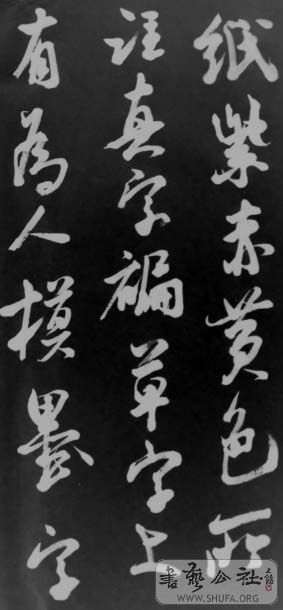 纸紫赤黄色所
注真字褊草字上
有为人模墨字
書藝公社
WWW.SHUFA.ORG